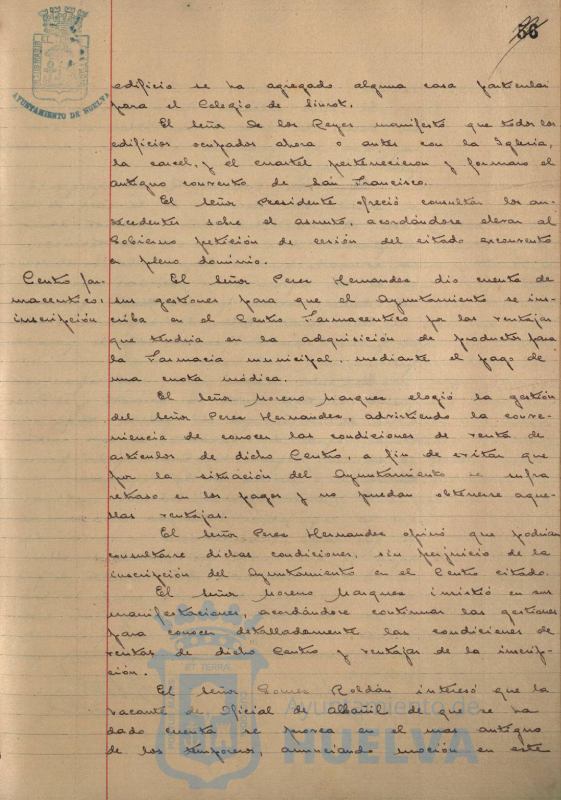 56
AYUNTAMIENTO DE HUELVA
edificio se ha agregado alguna casa particular
para el Colegio de Siurot.
El Señor De los Reyes manifestó que todos los
edificios ocupados ahora o antes con la Iglesia,
la carcel, y el cuartel pertenecieron y forman el
antiguo convento de San Francisco.
El Señor Presidente ofreció consultar los an-
tecedentes sobre el asunto, acordándose elevar al
Gobierno petición de cesión del citado exconvento
en pleno dominio.
Centro far-
maceutico:
inscripción
El Señor Perez Hernandez dio cuenta de
sus gestiones para que el Ayuntamiento se ins-
criba en el Centro Farmaceutico por las ventajas
que tendria en la adquisición de productos para
la Farmacia municipal, mediante el pago de
una cuota módica.
El Señor Moreno Marquez elogió la gestión
del Señor Perez Hernandez, advirtiendo la conve-
niencia de conocer las condiciones de venta de
articulos de dicho Centro, a fin de evitar que
por la situación del Ayuntamiento se sufra
retraso en los pagos y no puedan obtenerse aque-
llas ventajas.
El Señor Perez Hernandez opinó que podrian
consultarse dichas condiciones, sin perjuicio de la
inscripción del Ayuntamiento en el Centro citado.
El Señor Moreno Marquez insistió en sus
manifestaciones, acordándose continuar las gestiones
para conocer detalladamente las condiciones de
ventas de dicho Centro y ventajas de la inscrip-
ción.
El Señor Gomez Roldán interesó que la
vacante de Oficial de albañil de que se ha
dado cuenta se provea en el mas antiguo
de los temporeros, anunciando moción en este
Ayuntamiento de
HUELVA